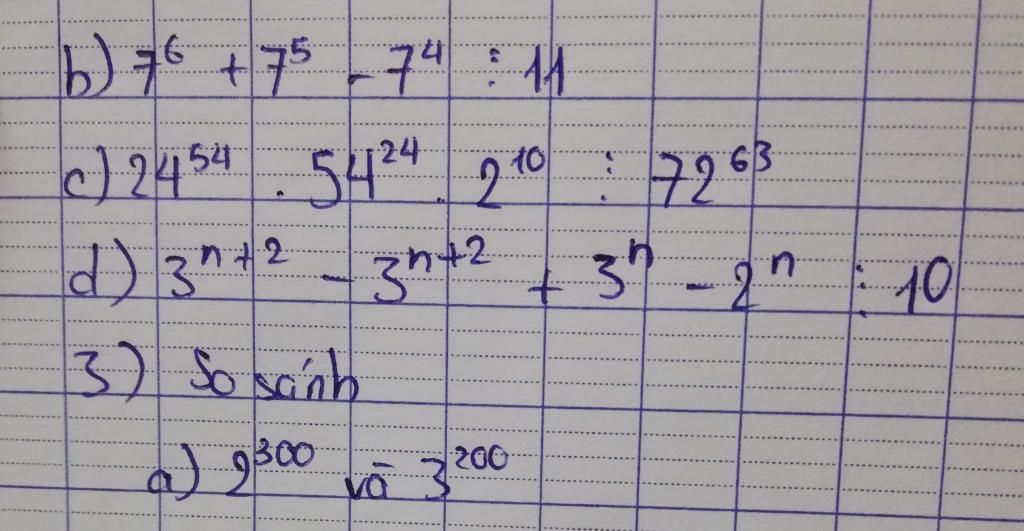 b) 7⁶ + 7⁵ - 7⁴ ⋮ 11
c) 24⁵⁴ . 54²⁴ . 2¹⁰ ⋮ 72⁶³
d) 3ⁿ⁺² - 3ⁿ⁺² + 3ⁿ - 2ⁿ ⋮ 10
3) So sánh
a) 2³⁰⁰ và 3²⁰⁰